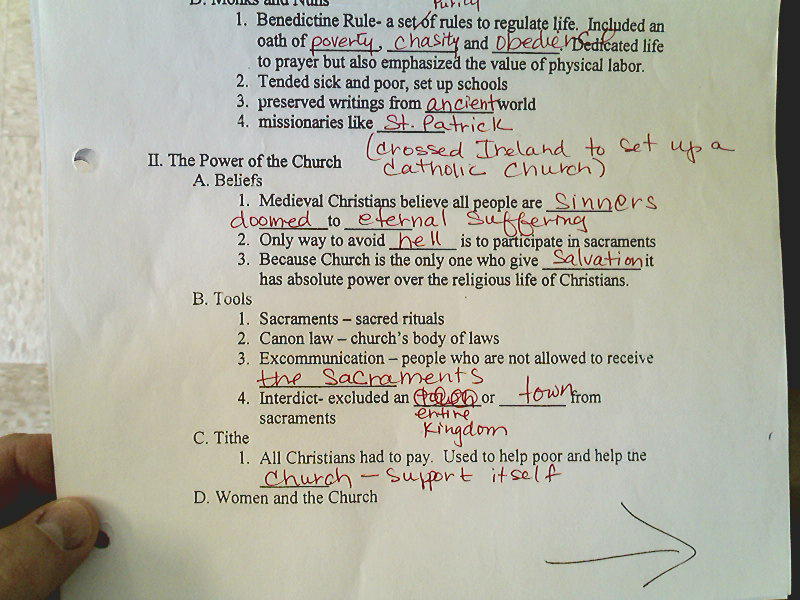 D. Monks and Nuns
Purity
1. Benedictine Rule- a set of rules to regulate life. Included an
oath of poverty, chasity and obedience. Dedicated life
to prayer but also emphasized the value of physical labor.
2. Tended sick and poor, set up schools
3. preserved writings from ancient world
4. missionaries like St. Patrick
(crossed Ireland to set up a
catholic church)
II. The Power of the Church
A. Beliefs
1. Medieval Christians believe all people are sinners
doomed to eternal suffering
2. Only way to avoid hell is to participate in sacraments
3. Because Church is the only one who give Salvation it
has absolute power over the religious life of Christians.
B. Tools
1. Sacraments – sacred rituals
2. Canon law – church's body of laws
3. Excommunication – people who are not allowed to receive
the Sacraments
4. Interdict- excluded an or town from
entire
sacraments
Kingdom
C. Tithe
1. All Christians had to pay. Used to help poor and help the
Church – support itself
D. Women and the Church